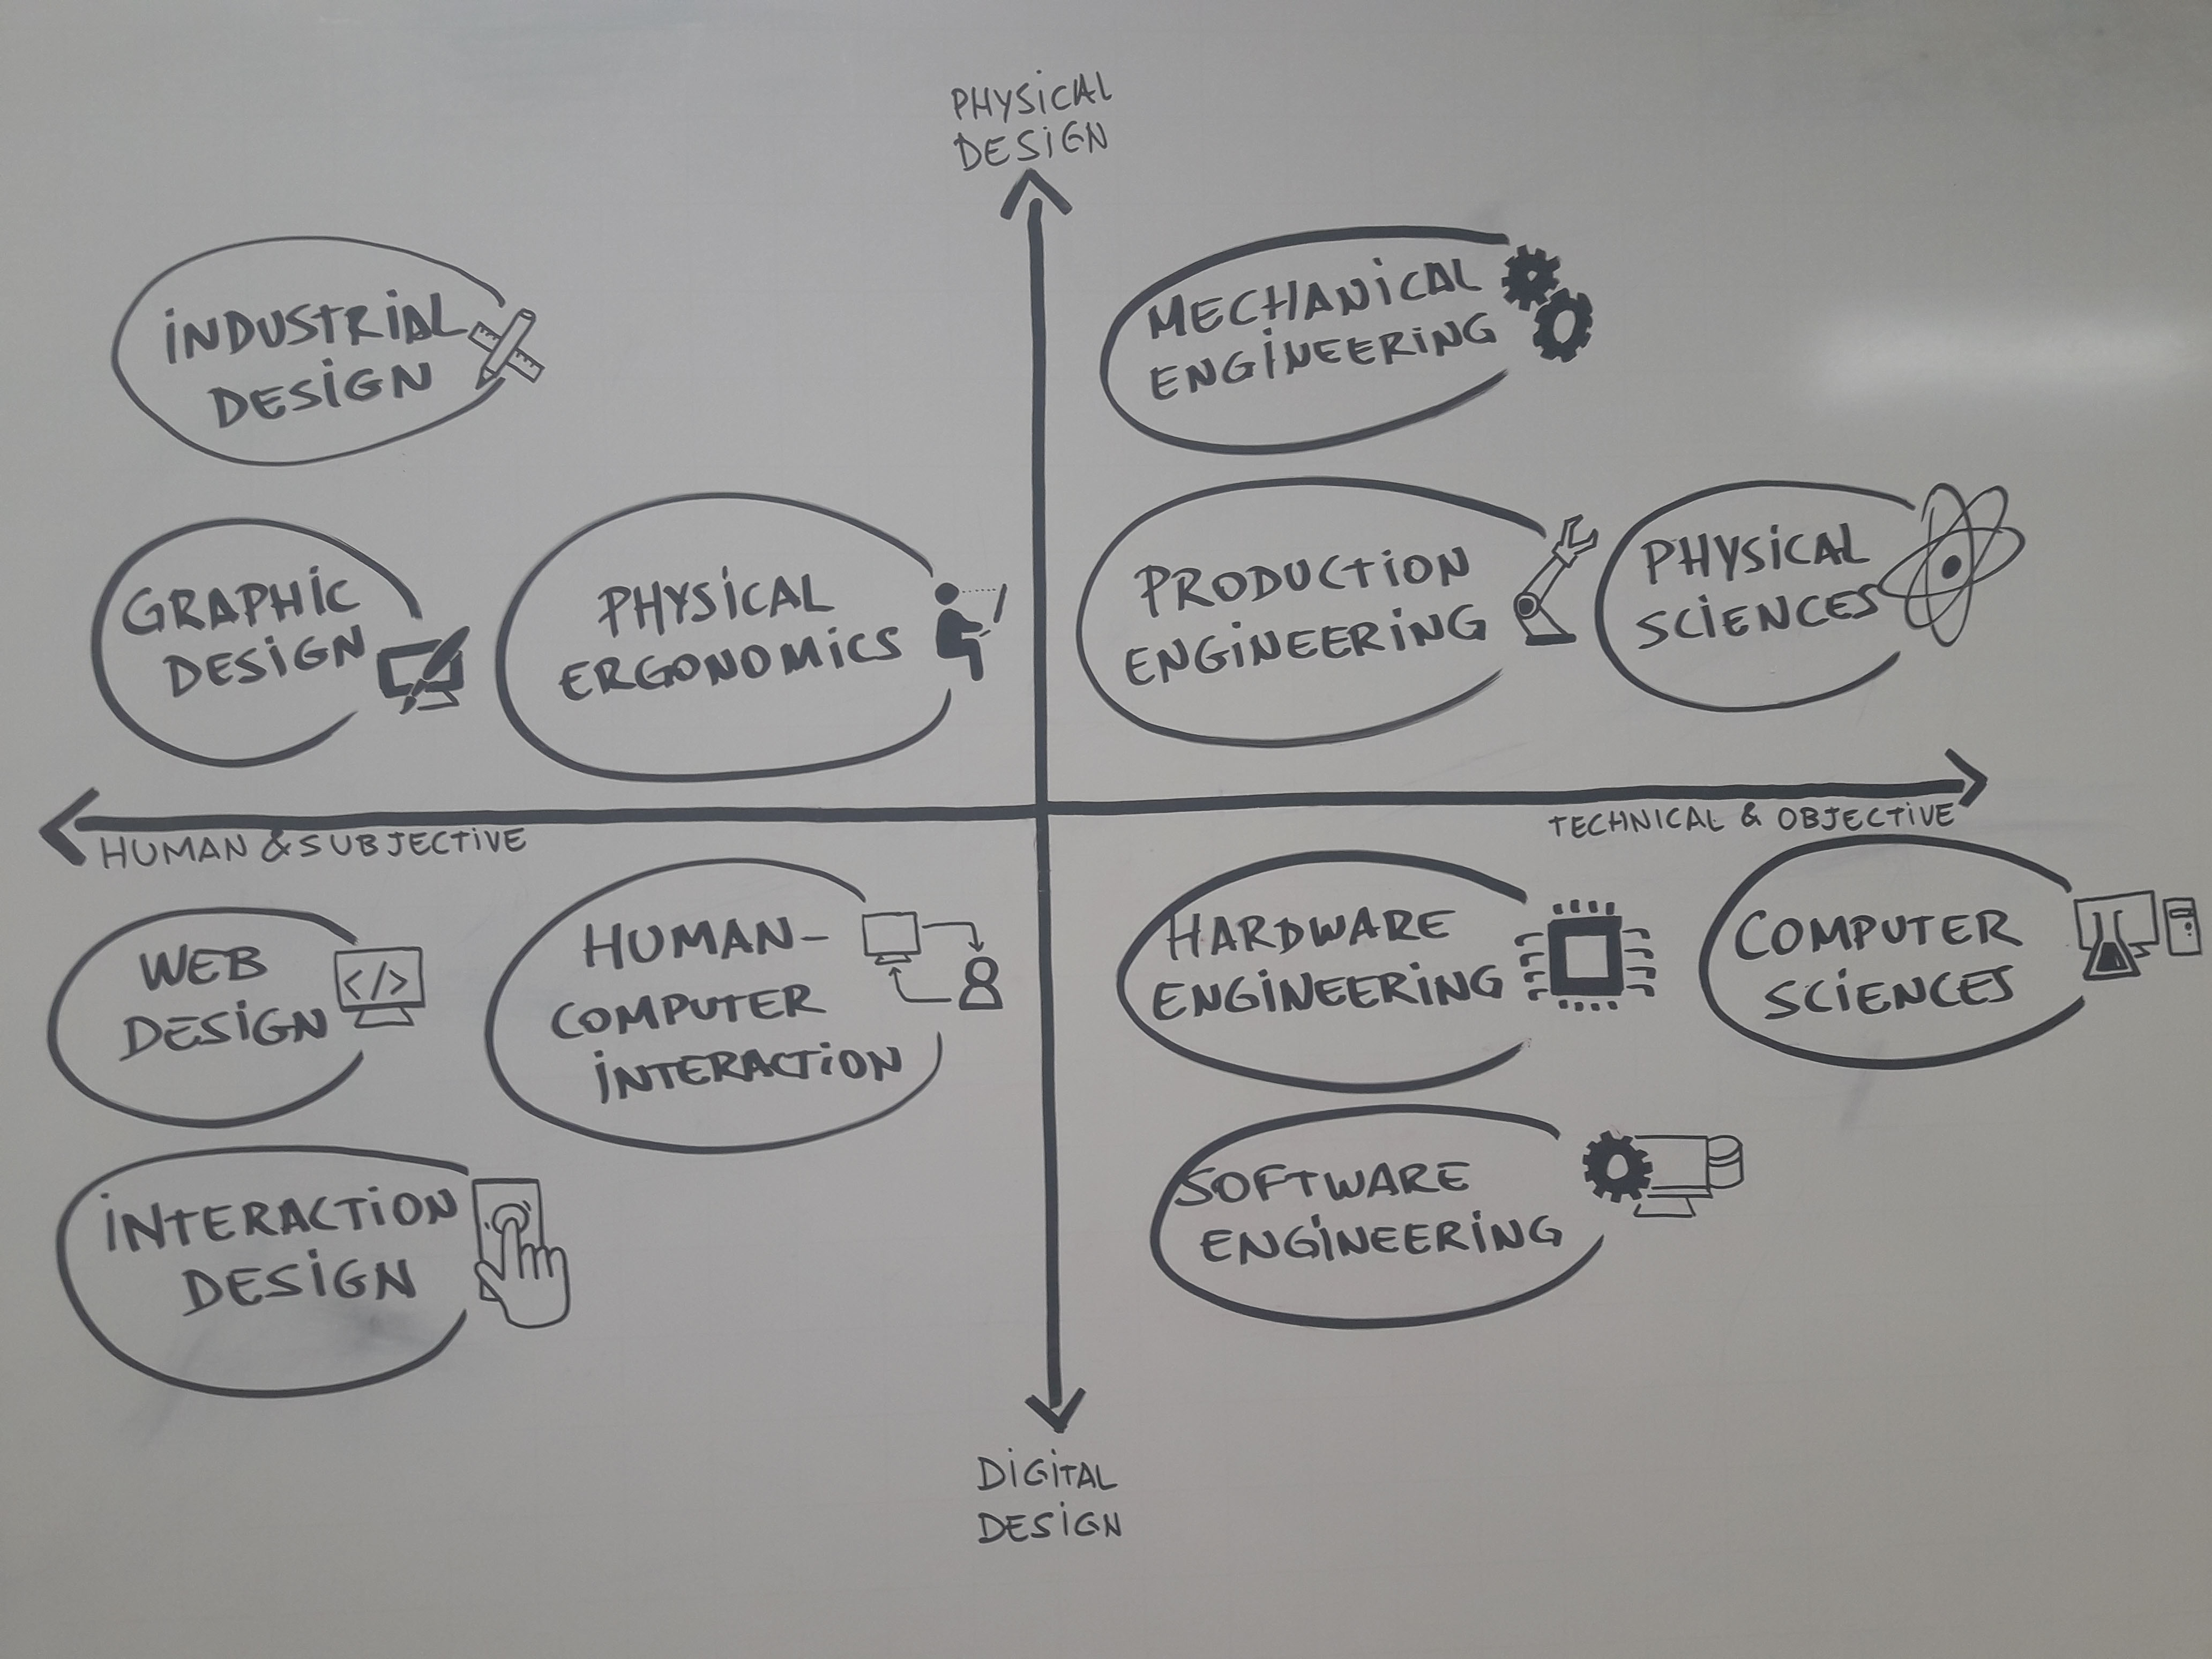 PHYSICAL
DESIGN
INDUSTRIAL
DESIGN
MECHANICAL
ENGINEERING
GRAPHIC
DESIGN
PHYSICAL
ERGONOMICS
PRODUCTION
ENGINEERING
PHYSICAL
SCIENCES
HUMAN & SUBJECTIVE
TECHNICAL & OBJECTIVE
WEB
DESIGN
</>
HUMAN-
COMPUTER
INTERACTION
HARDWARE
ENGINEERING
COMPUTER
SCIENCES
INTERACTION
DESIGN
SOFTWARE
ENGINEERING
DIGITAL
DESIGN